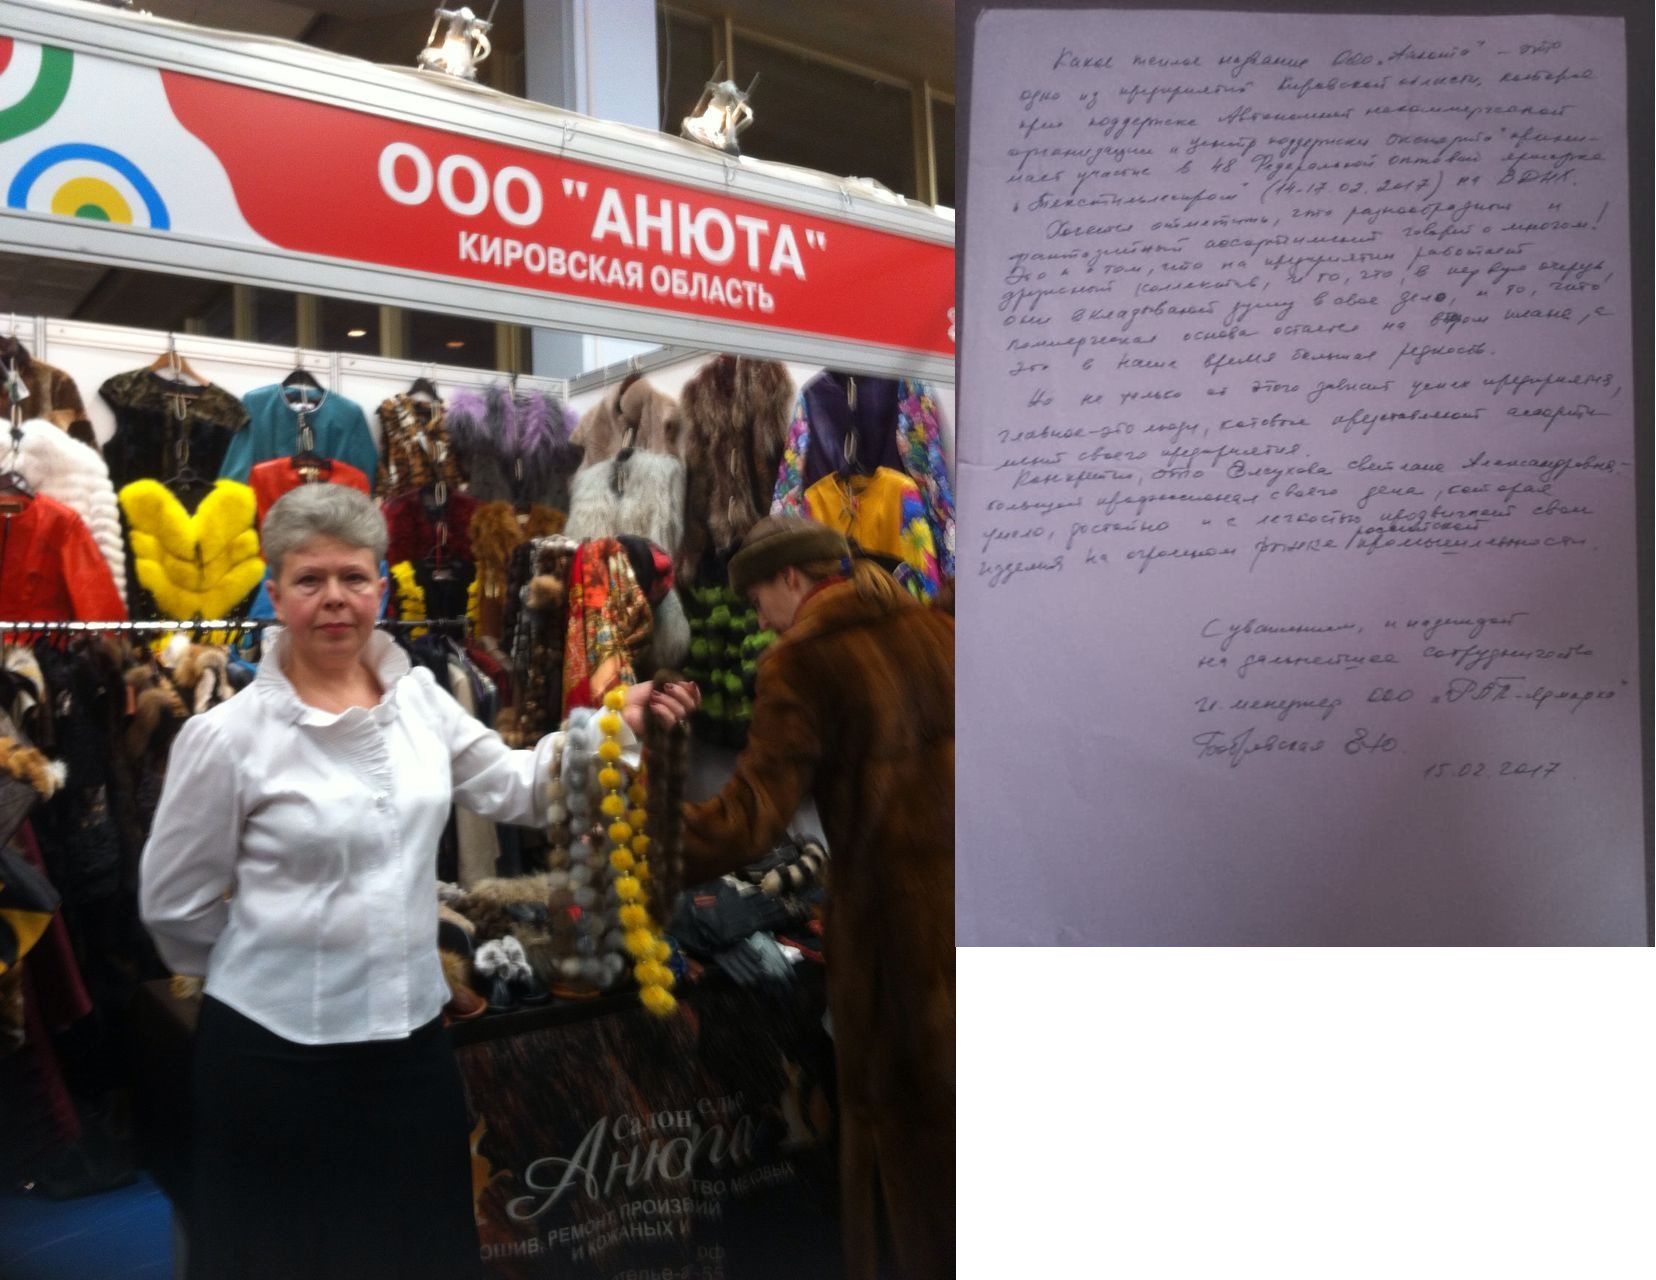 ООО "АНЮТА"
КИРОВСКАЯ ОБЛАСТЬ
Салон
Анюта
ОШИВ, РЕМОНТ, ПРОИЗВ
ТВО МЕХОВЫХ
И КОЖАНЫХ И
рф
Какое теплое название ООО "Анюта" – это
одно из предприятий Кировской области, которое
при поддержке Автономной некоммерческой
организации "Центр поддержки экспорта" прини-
мает участие в 48 Федеральной оптовой ярмарке
"Текстильлегпром" (14-17.02.2017) на ВДНХ.
Хочется отметить, что разнообразный и
фантазийный ассортимент говорит о многом!
Это и о том, что на предприятии работает
дружный коллектив, и то, что, в первую очередь,
они вкладывают душу в свое дело, и то, что
коммерческая основа остается на втором плане, а
это в наше время большая редкость.
Но не только от этого зависит успех предприятия,
главное – это люди, которые представляют ассорти-
мент своего предприятия.
Конкретно, это Светлана Александровна –
большой профессионал своего дела, которая
умело, достойно и с легкостью продвигает свои
изделия на огромном рынке российской промышленности.
С уважением, и надеждой
на дальнейшее сотрудничество
менеджер ООО "РЛП-Ярмарка"
15.02.2017